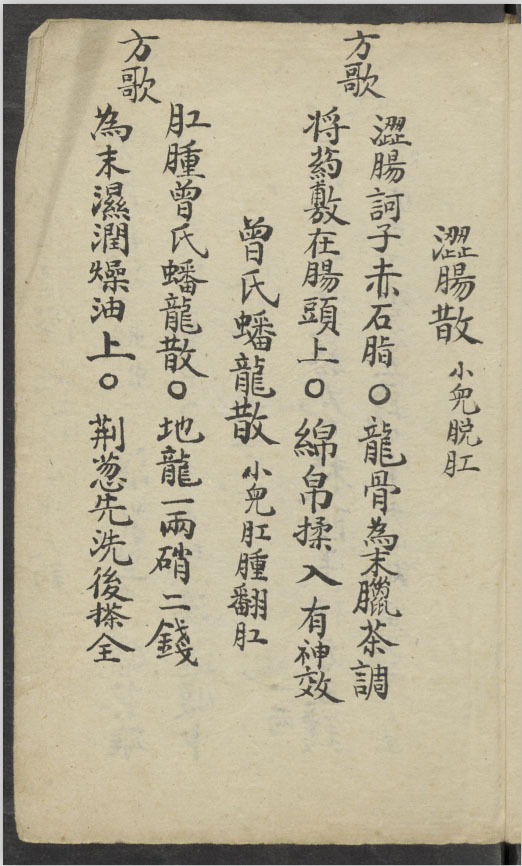 澀腸散 小兒脱肛
方歌
澀腸訶子赤石脂○龍骨為末臘茶調
将葯敷在腸頭上○綿帛揉入有神效
曾氏蟠龍散 小兒肛腫翻肛
方歌
肛腫曾氏蟠龍散○地龍一兩硝二錢
為末濕潤燥油上○荆葱先洗後搽全